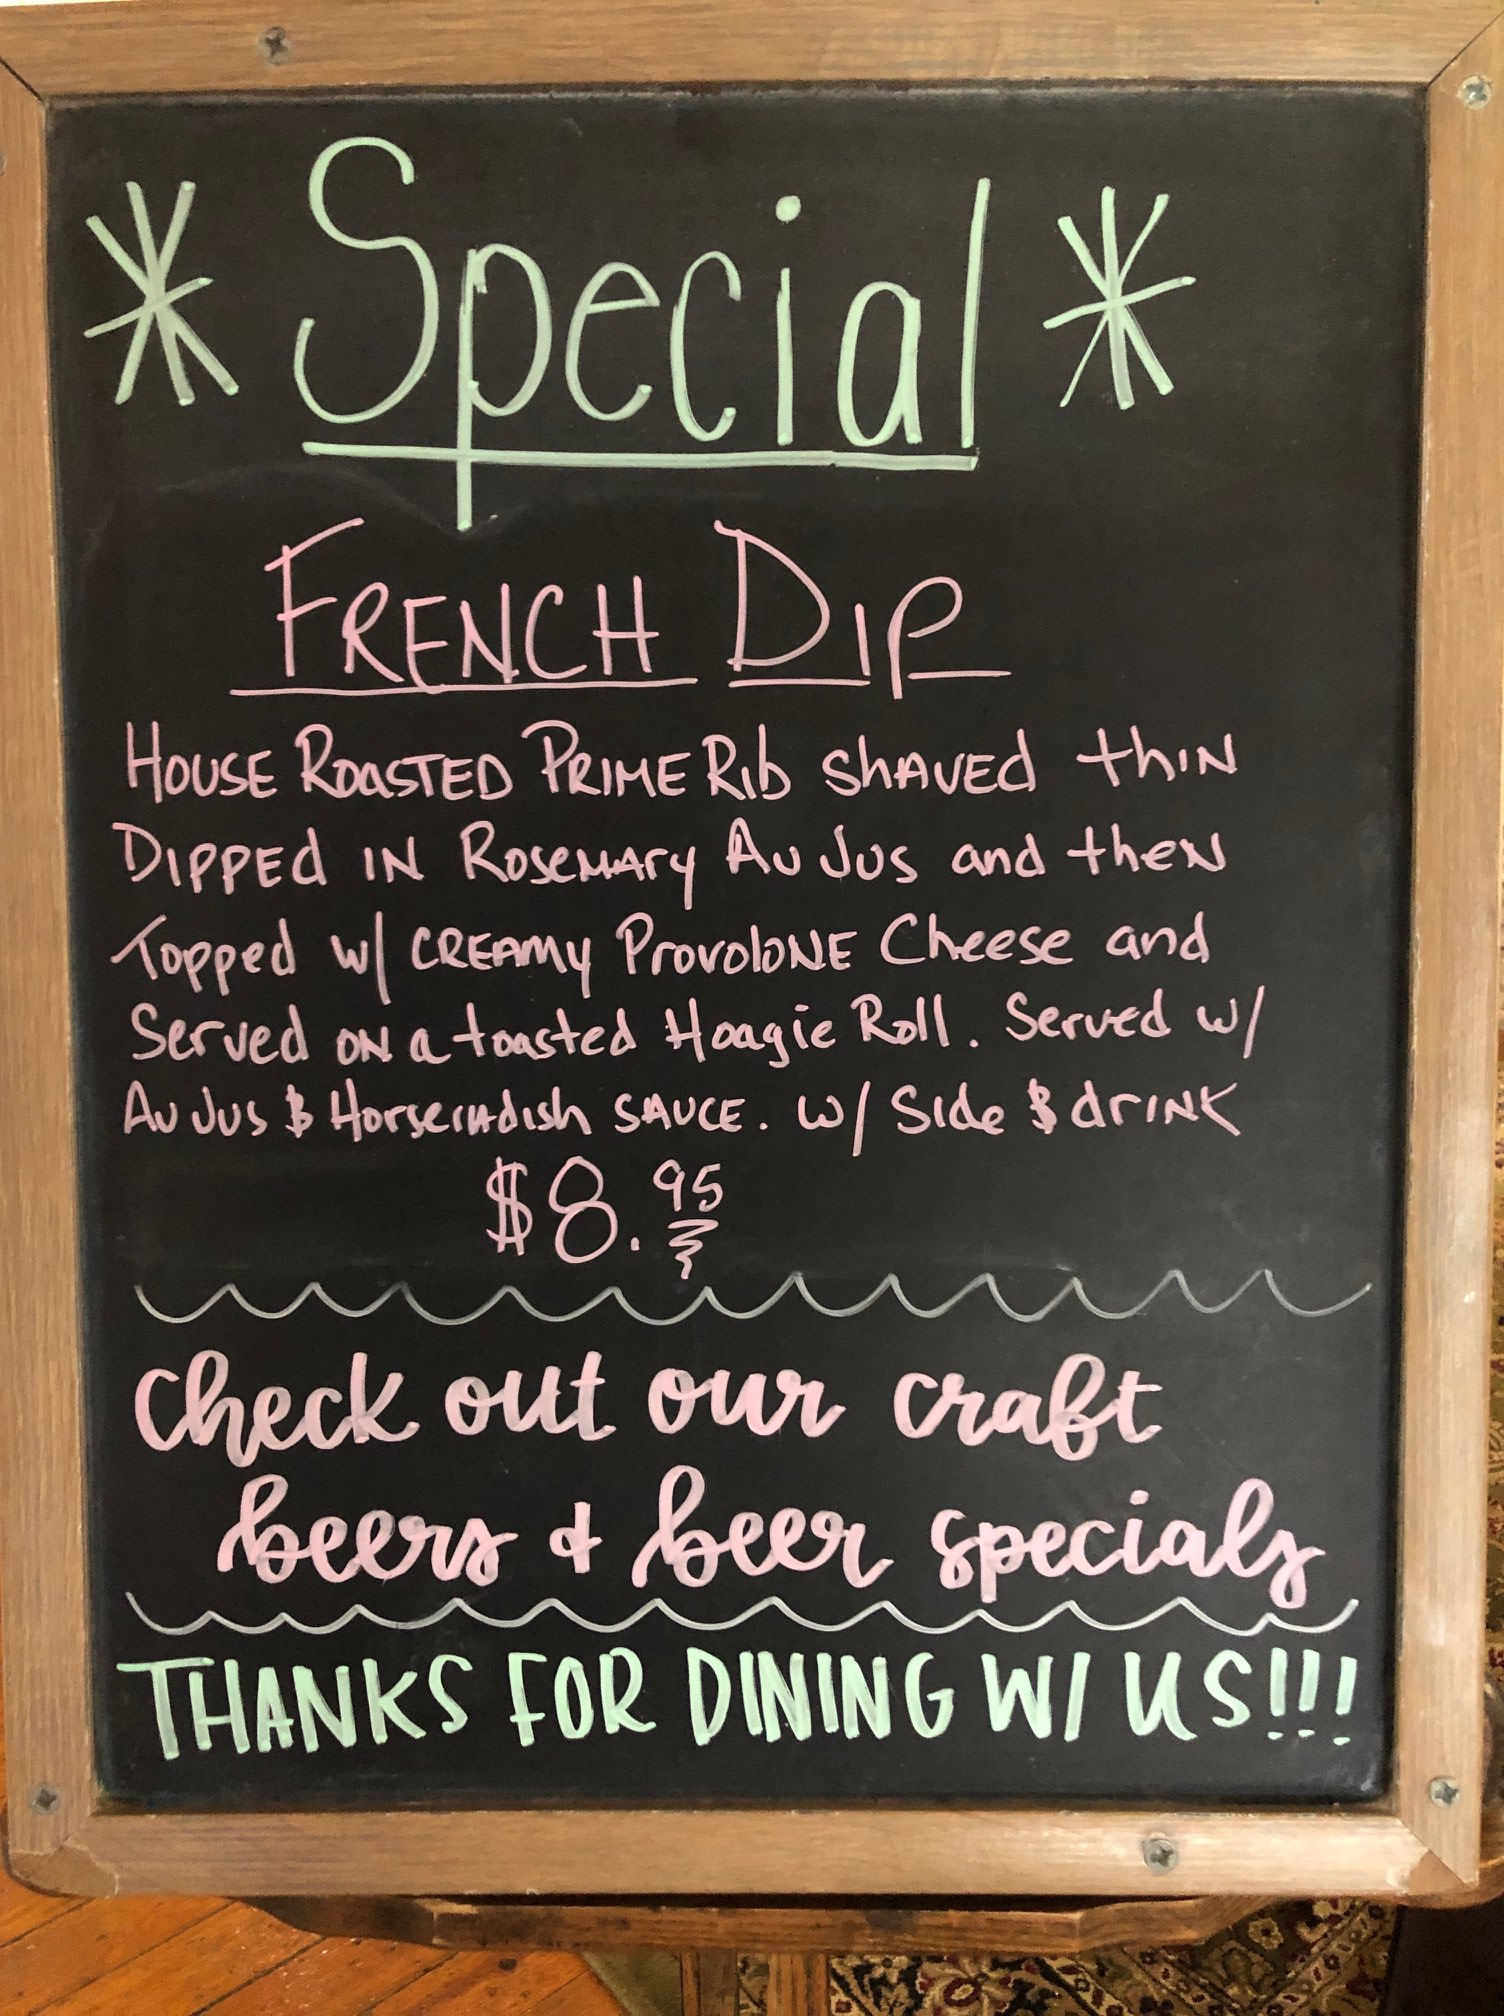 * Special *
FRENCH DIP
HOUSE ROASTED PRIME Rib SHAVED thIN
DIPPEd IN ROSEMARY AU JUS and theN
Topped w/ CREAMY ProvoloNE Cheese and
Served ON a toasted Hoagie Roll. Served w/
AU JUS & Horseradish SAUCE. w/ Side & drINK
$8.95
check out our craft
beers & beer specials
THANKS FOR DINING W/ US!!!